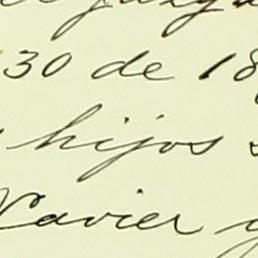 30 de 18
hijos
Xavier y